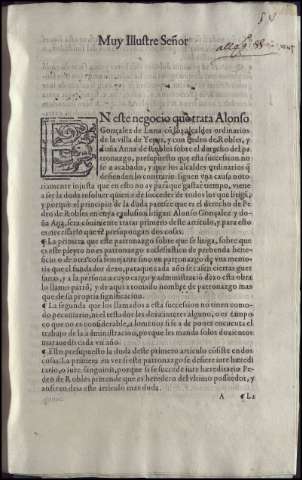 Muy Illustre Señor
EN este negocio que trata Alonso
Gonçalez de Luna con los alcaldes ordinarios
de la villa de Yepes, y con Pedro de Robles, y
doña Anna de Robles sobre el dar
patronazgo, presupuesto que esta succession no
se a acabado, y que los alcaldes ordinarios
defienden lo contrario siguen vna causa noto
riamente injusta que en esto no ay para que gastar tiempo, viene
a ser la duda resoluer quien a de succeder de todos los que litigã,
y porque el principal de la duda parece que es el derecho de Pe
dro de Robles en cuya exclusion litigan Alonso Gonçalez y do
ña Ana, sera conueniente tratar primero deste articulo, y para esto
entrecisarle
¶ La primera que este patronazgo sobre que se litiga, sobre que
es este pleyto no es patronazgo eclesiastico de prebenda benefi
cio o de otra cosa semejante sino un patronazgo de vna memo
ria que el fundador dexo, para que cada año se casen ciertas guer
fanas, y a la persona a cuyo cargo y administracion dexo esta obra
los llamo patrõ, y de aqui a tomado nombre de patronazgo mas
que de su propria significacion.
¶ La segunda que los llamados a esta succession no tienen como
do pecuniario, ni el testador les dexa interes alguno, o es tan po
co que no es considerable, a lo menos sirue de poner en cuenta el
trabajo de la administracion, porque les manda solos doze mil
marauedis cada vn año.
¶ Esto presupuesto la duda deste primero articulo consiste en dos
cosas. La primera an vere si este patronazgo se defiere iure heredi
tario, o iure sanguinis, porque si se succede iure hæreditario Pe
dro de Robles pretende que es heredero del vltimo possedor, y
ansi cen dria este articulo mas duda.
A ¶ La